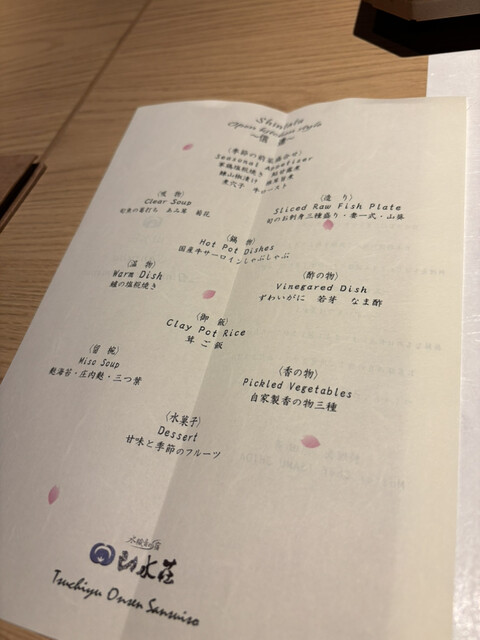 Shintata
Open kitchen style
(季節の前菜盛合せ)
Seasonal Appetizer
(吸 物)
Clear Soup
(造 り)
Sliced Raw Fish Plate
旬のお刺身三種盛り・妻一式・山葵
(鍋 物)
Hot Pot Dishes
国産牛サーロインしゃぶしゃぶ
(温 物)
Warm Dish
鱸の塩糀焼き
(酢の物)
Vinegared Dish
ずわいがに 若芽 なま酢
(御 飯)
Clay Pot Rice
茸 ご 飯
(留 椀)
Miso Soup
・庄内麩・三つ葉
(香の物)
Pickled Vegetables
自家製香の物三種
(水菓子)
Dessert
甘味と季節のフルーツ
水荘
Tsuchiyu Onsen Sansuiso